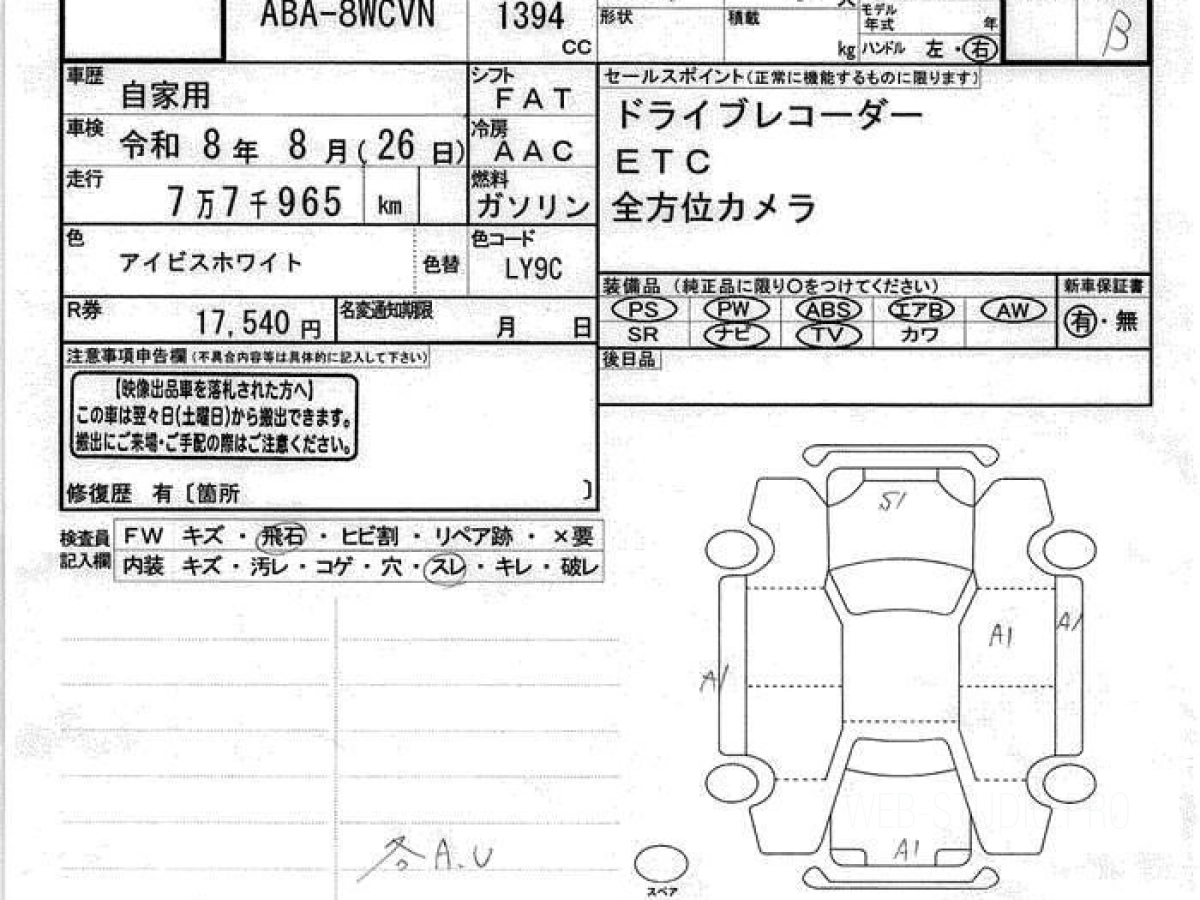 ABA-8WCVN
1394
CC
形状
積載
kg
モデル
年式
年
ハンドル 左・右
B
車歴
自家用
シフト
FAT
セールスポイント(正常に機能するものに限ります)
ドライブレコーダー
ETC
全方位カメラ
車検
令和 8年 8月(26日)
冷房
AAC
走行
7万7千965 km
燃料
ガソリン
色
アイビスホワイト
色替
色コード
LY9C
装備品 (純正品に限り○をつけてください)
新車保証書
PS PW ABS エアB AW
有・無
SR ナビ TV カワ
R券
17,540 円
名変通知期限
月 日
後日品
注意事項申告欄(不具合内容等は具体的に記入して下さい)
【映像出品車を落札された方へ】
この車は翌々日(土曜日)から搬出できます。
搬出にご来場・ご手配の際はご注意ください。
修復歴 有〔箇所 〕
検査員
記入欄
FW キズ・飛石・ヒビ割・リペア跡・×要
内装 キズ・汚レ・コゲ・穴・スレ・キレ・破レ
S1
A1
A1
A1
A1
各A.U
スペア
WEB-STUDIO.PRO